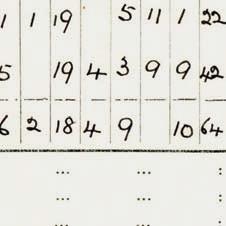 1 1 19 5 11 1 22
5 19 4 3 9 9 42
6 2 18 4 9 10 64
... ... :
... ... :
... ... :